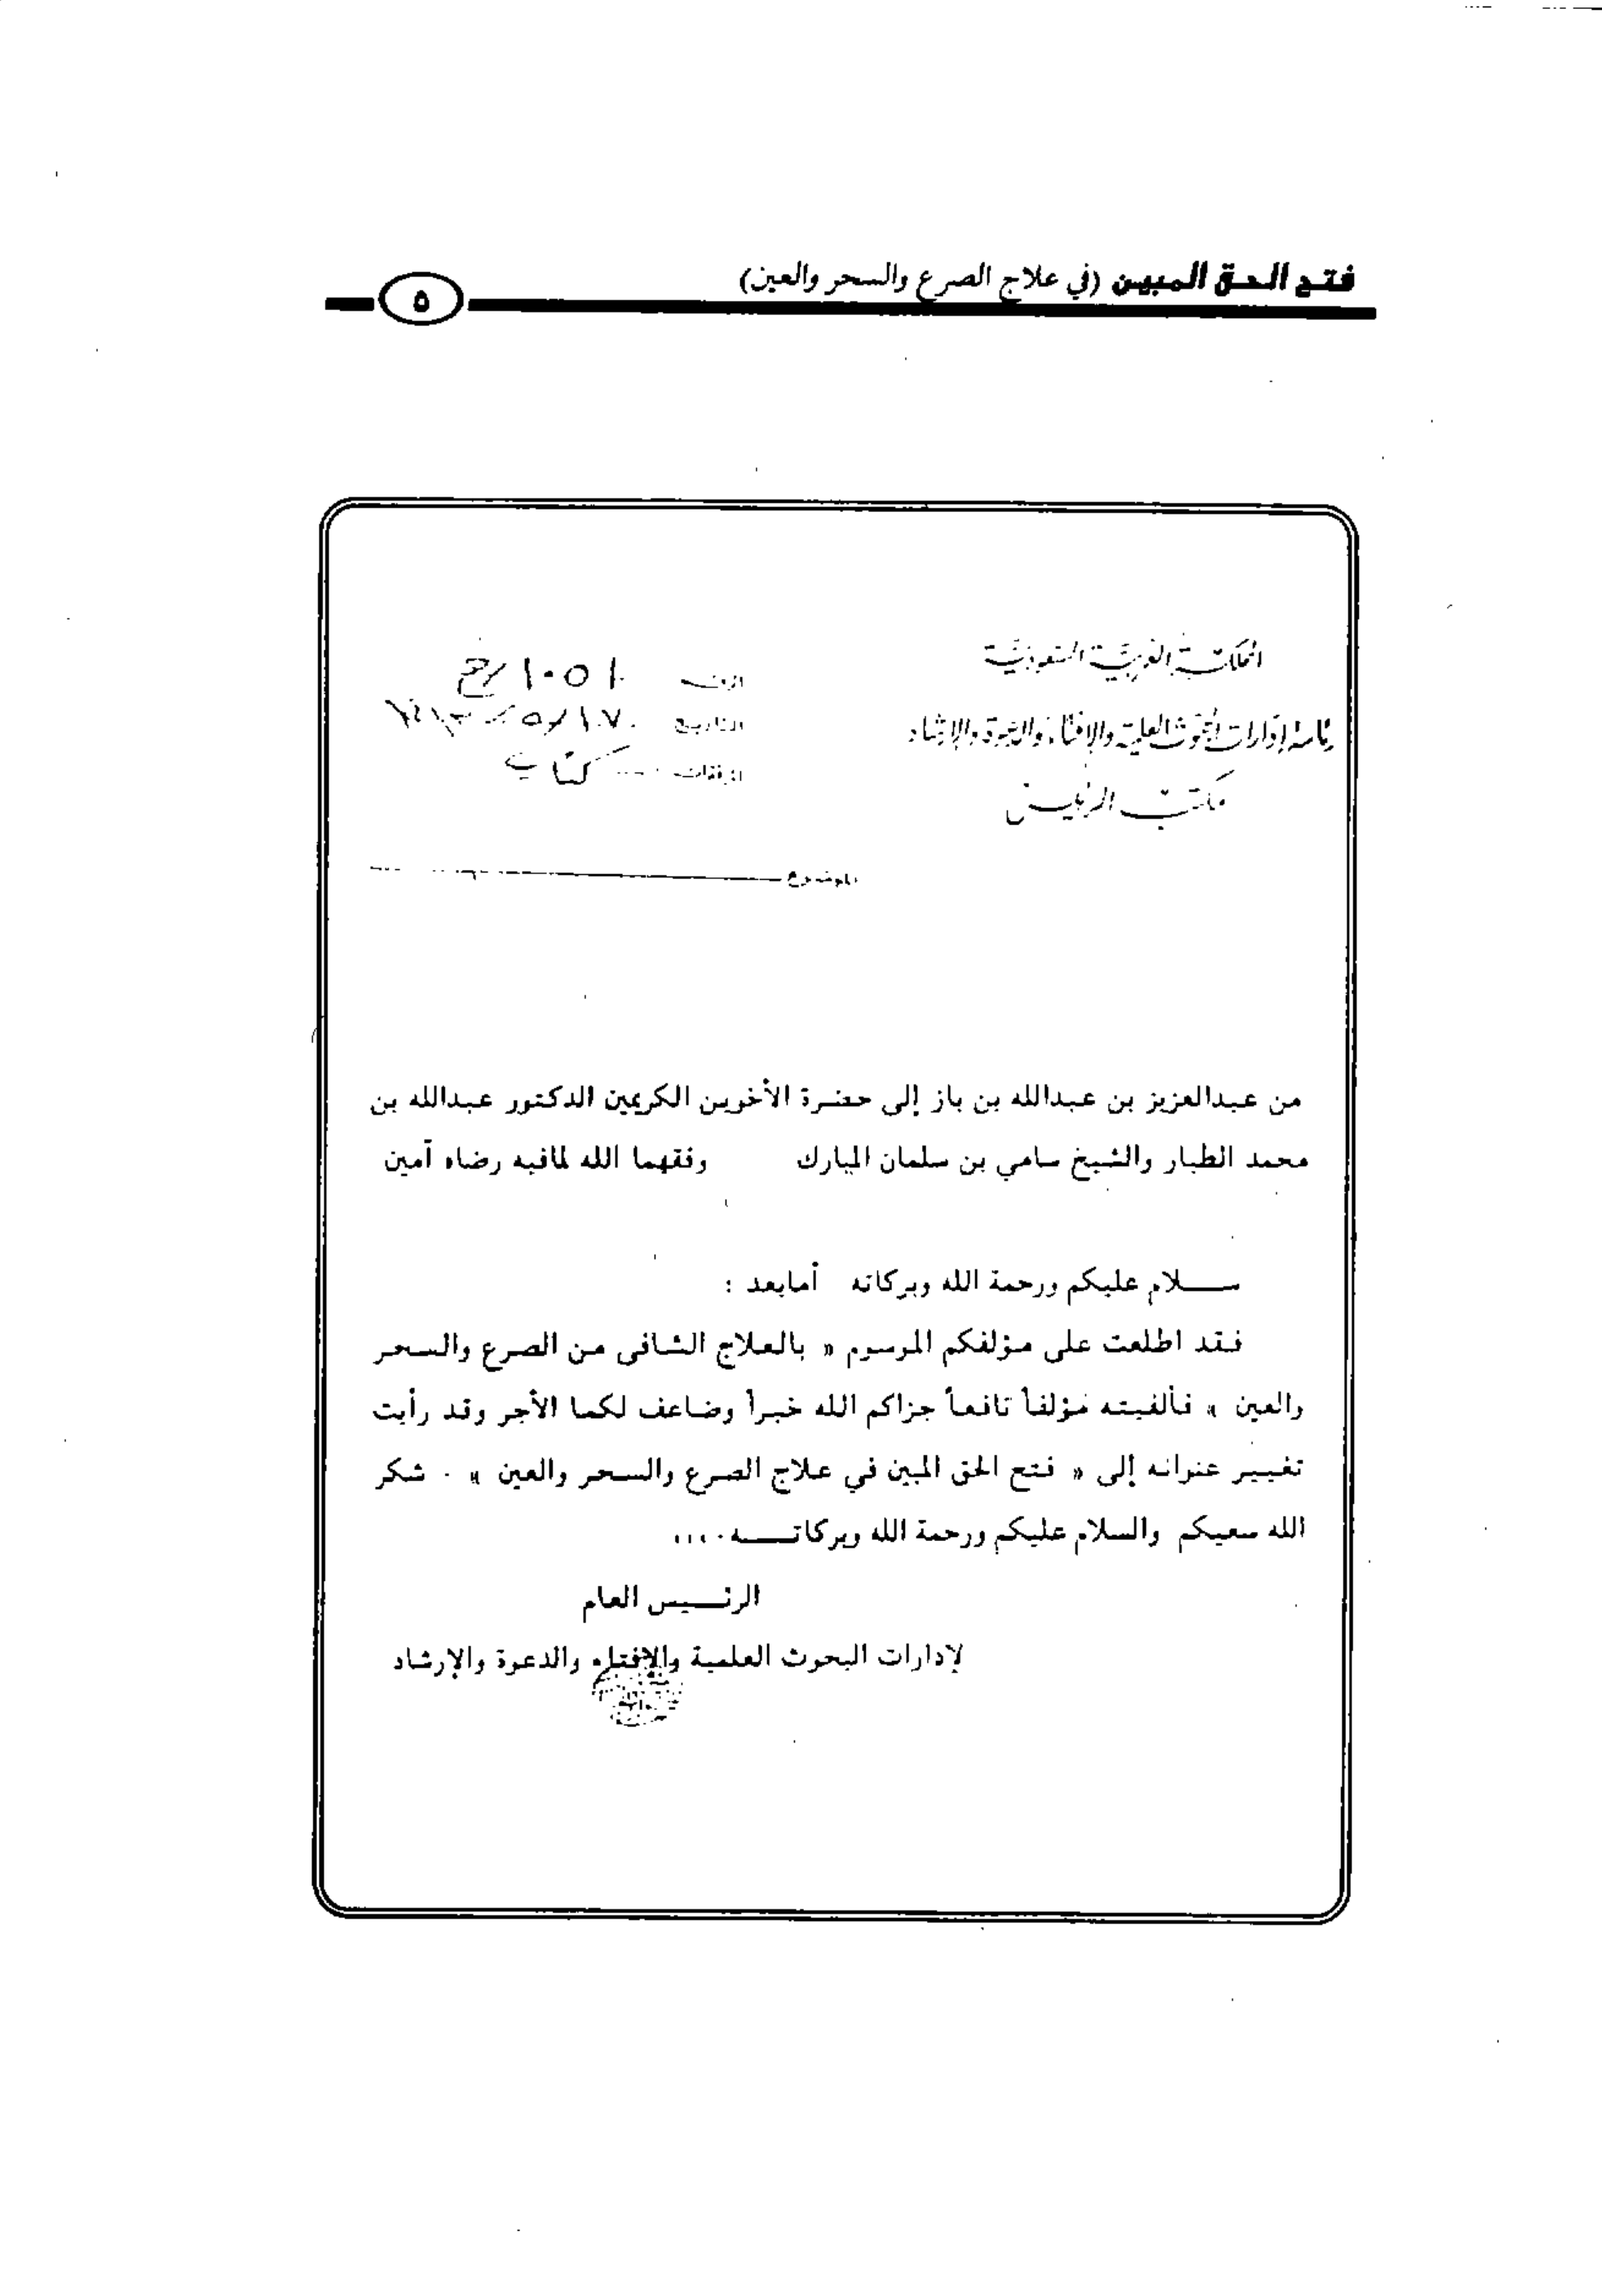 فتح الحق المبين (في علاج الصرع والسحر والعين)
٥
المملكة العربية السعودية
رئاسة إدارات البحوث العلمية والإفتاء والدعوة والإرشاد
مكتب الرئيس
الرقم ١٠٥١/خ
التاريخ
المرفقات كتاب
الموضوع
من عبدالعزيز بن عبدالله بن باز إلى حضرة الأخوين الكريمين الدكتور عبدالله بن
محمد الطيار والشيخ سامي بن سلمان المبارك وفقهما الله لمافيه رضاه آمين
ســـلام عليكم ورحمة الله وبركاته أمابعد :
فقد اطلعت على مؤلفكم الموسوم « بالعلاج الشافى من الصرع والسحر
والعين » فألفيته مؤلفاً نافعاً جزاكم الله خيراً وضاعف لكما الأجر وقد رأيت
تغيير عنوانه إلى « فتح الحق المبين في علاج الصرع والسحر والعين » . شكر
الله سعيكم والسلام عليكم ورحمة الله وبركاتــــه....
الرئــيس العام
لإدارات البحوث العلمية والإفتاء والدعوة والإرشاد